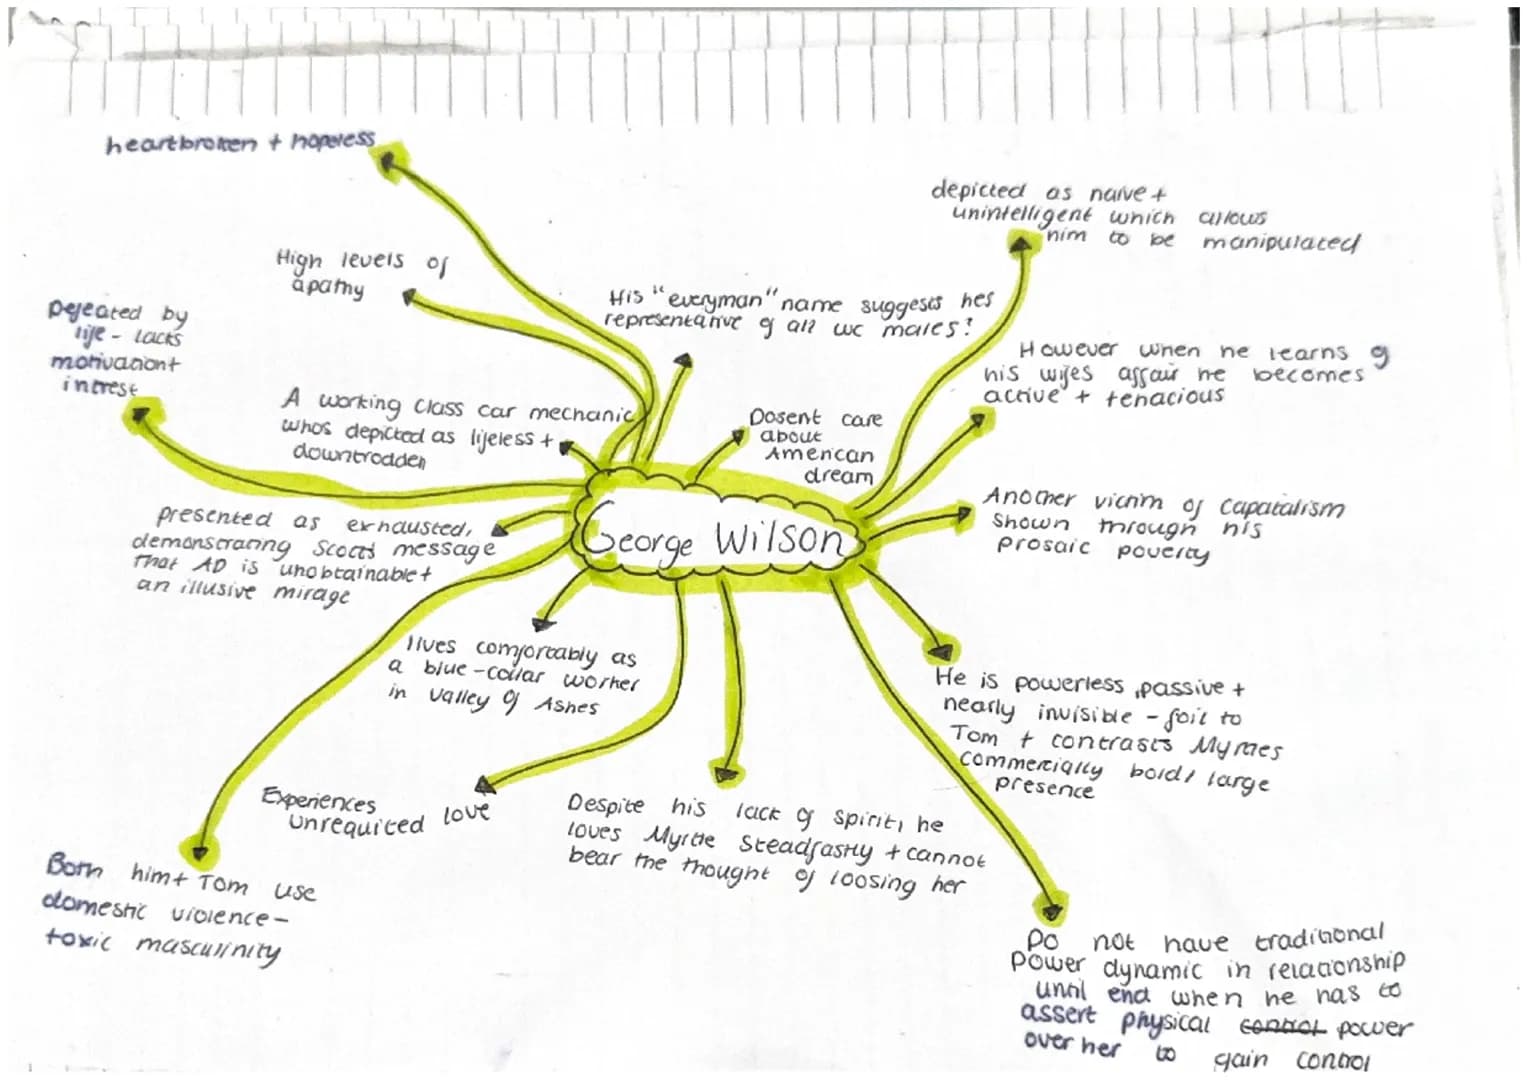 heartbroken + hopeless
High levels of
apathy
Defeated by
life - lacks
motivation +
intrest
A working class car mechanic
whos depicted as lifeless +
downtrodden
His "everyman" name suggests hes
representative of all wc males?
Dosent care
about
American
dream
depicted as naive +
unintelligent which allows
him to be manipulated
However when he learns of
his wifes affair he becomes
active + tenacious
Another victim of capatalism
shown through his
prosaic poverty
George Wilson
presented as exhausted,
demonstrating Scotts message
that AD is unobtainable +
an illusive mirage
lives comfortably as
a blue-collar worker
in Valley of Ashes
He is powerless, passive +
nearly invisible - foil to
Tom + contrasts Myrtles
commercially bold / large
presence
Experiences
unrequited love
Despite his lack of spirit, he
loves Myrtle steadfastly + cannot
bear the thought of loosing her
Both him + Tom use
domestic violence -
toxic masculinity
Do not have traditional
power dynamic in relationship
until end when he has to
assert physical control power
over her to gain control